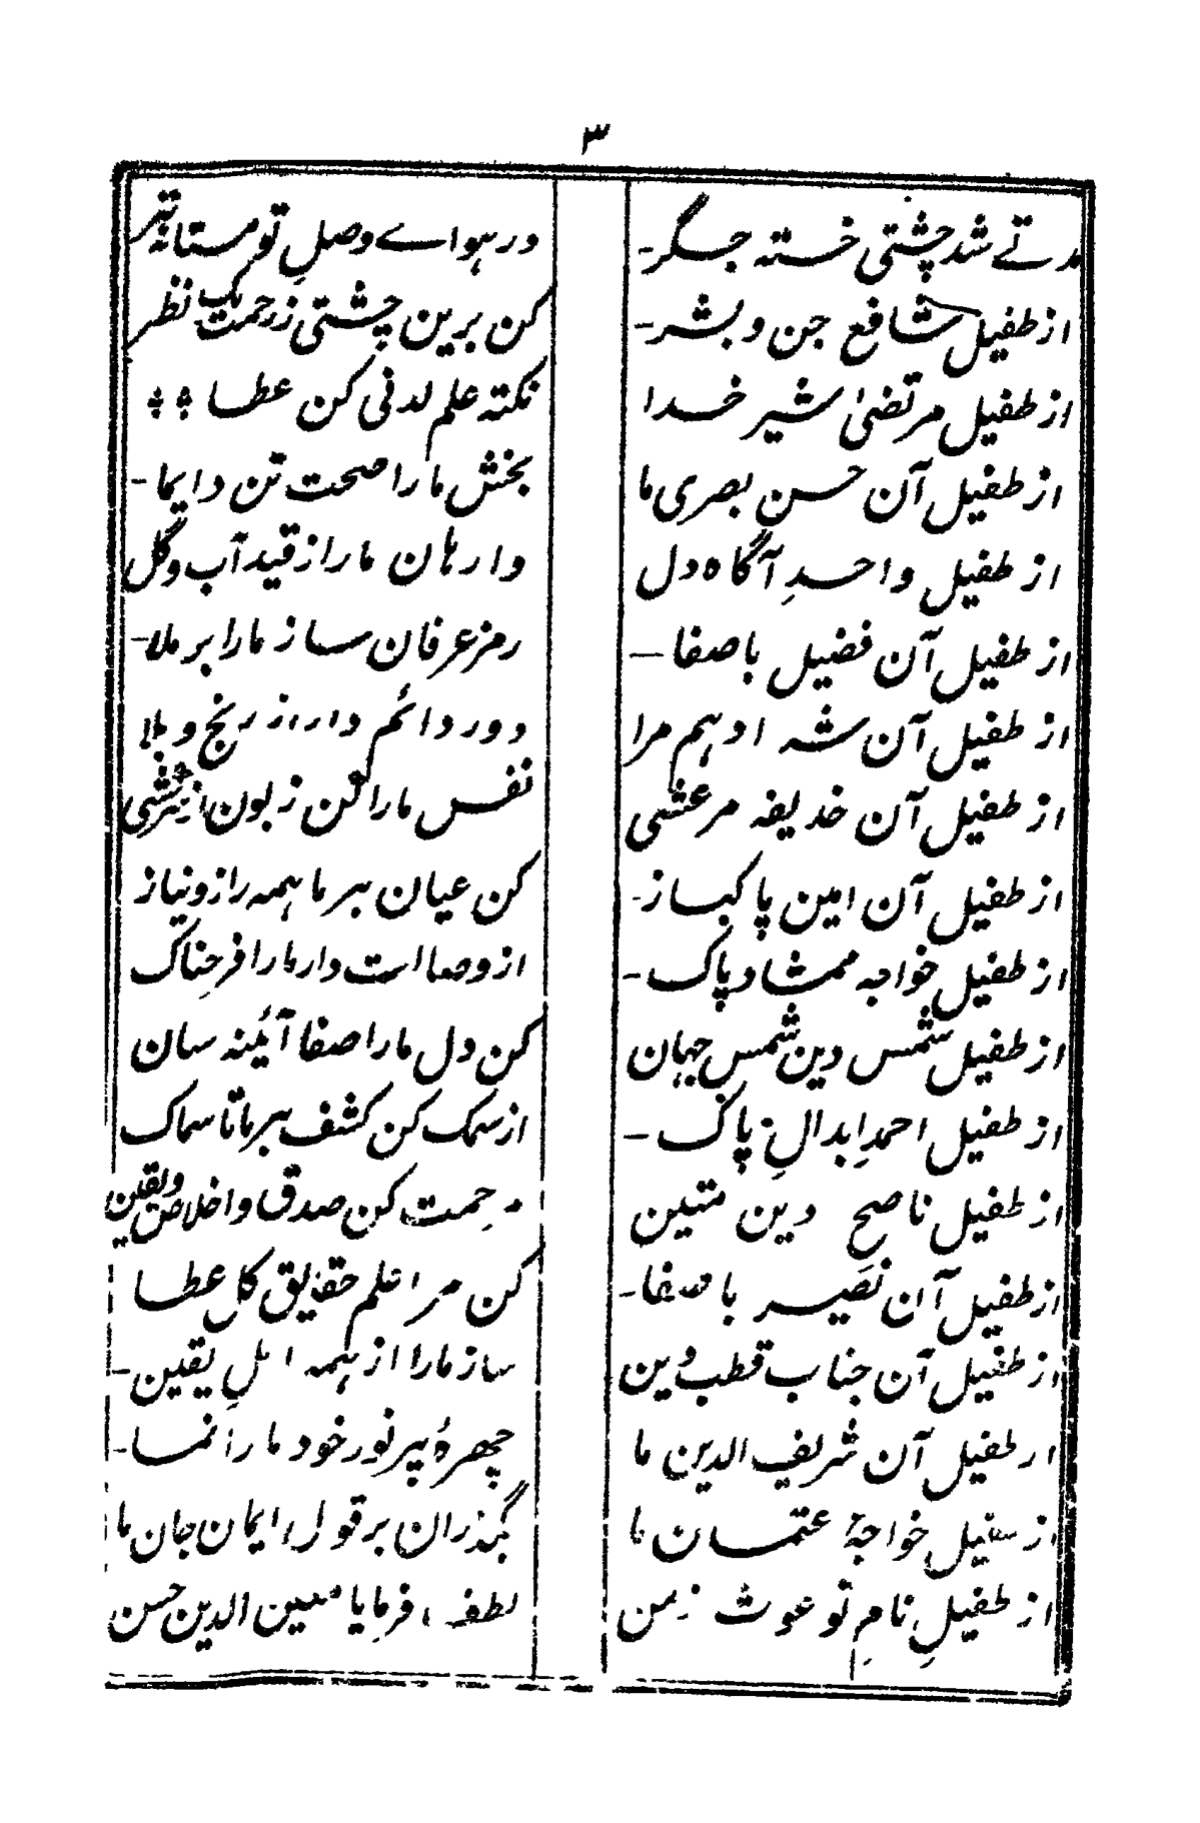 ۳
مدتے شد چشتی خستہ جگر- در ہواے وصلِ تو مستانہ تر
از طفیل شافع جن و بشر- کن برین چشتی ز رحمت یک نظر
از طفیل مرتضیٰ شیر خدا نکتہ علم لدنی کن عطا
از طفیل آن حسن بصری ما بخش ما را صحت تن دایما-
از طفیل واحدِ آگاہ دل وا رہان ما را از قید آب و گل
از طفیل آن فضیل با صفا- رمز عرفان ساز ما را بر ملا-
از طفیل آن شہ ادہم مرا دور دائم دار از رنج و بلا
از طفیل آن خدیفہ مرعشی نفس ما را کن زبون از سرکشی
از طفیل آن امین پاکباز- کن عیان بر ما ہمہ راز و نیاز
از طفیل خواجہ ممشاد پاک- از وصالت دار ما را فرحناک
از طفیل شمس دین شمس جہان کن دل ما را صفا آئینہ سان
از طفیل احمدِ ابدالِ پاک- از سمک کن کشف بر ما تا سماک
از طفیل ناصح دین متین رحمت کن صدق و اخلاص و یقین
از طفیل آن نصیر با صفا- کن مرا علم حقایق کل عطا
از طفیل آن جناب قطب دین ساز ما را از ہمہ اہلِ یقین-
از طفیل آن شریف الدین ما چہرۂ پر نور خود ما را نما-
از طفیل خواجۂ عثمان ما بگذران بر قول ایمان جان ما
از طفیلِ نامِ تو غوث زمن لطف فرما یا معین الدین حسن